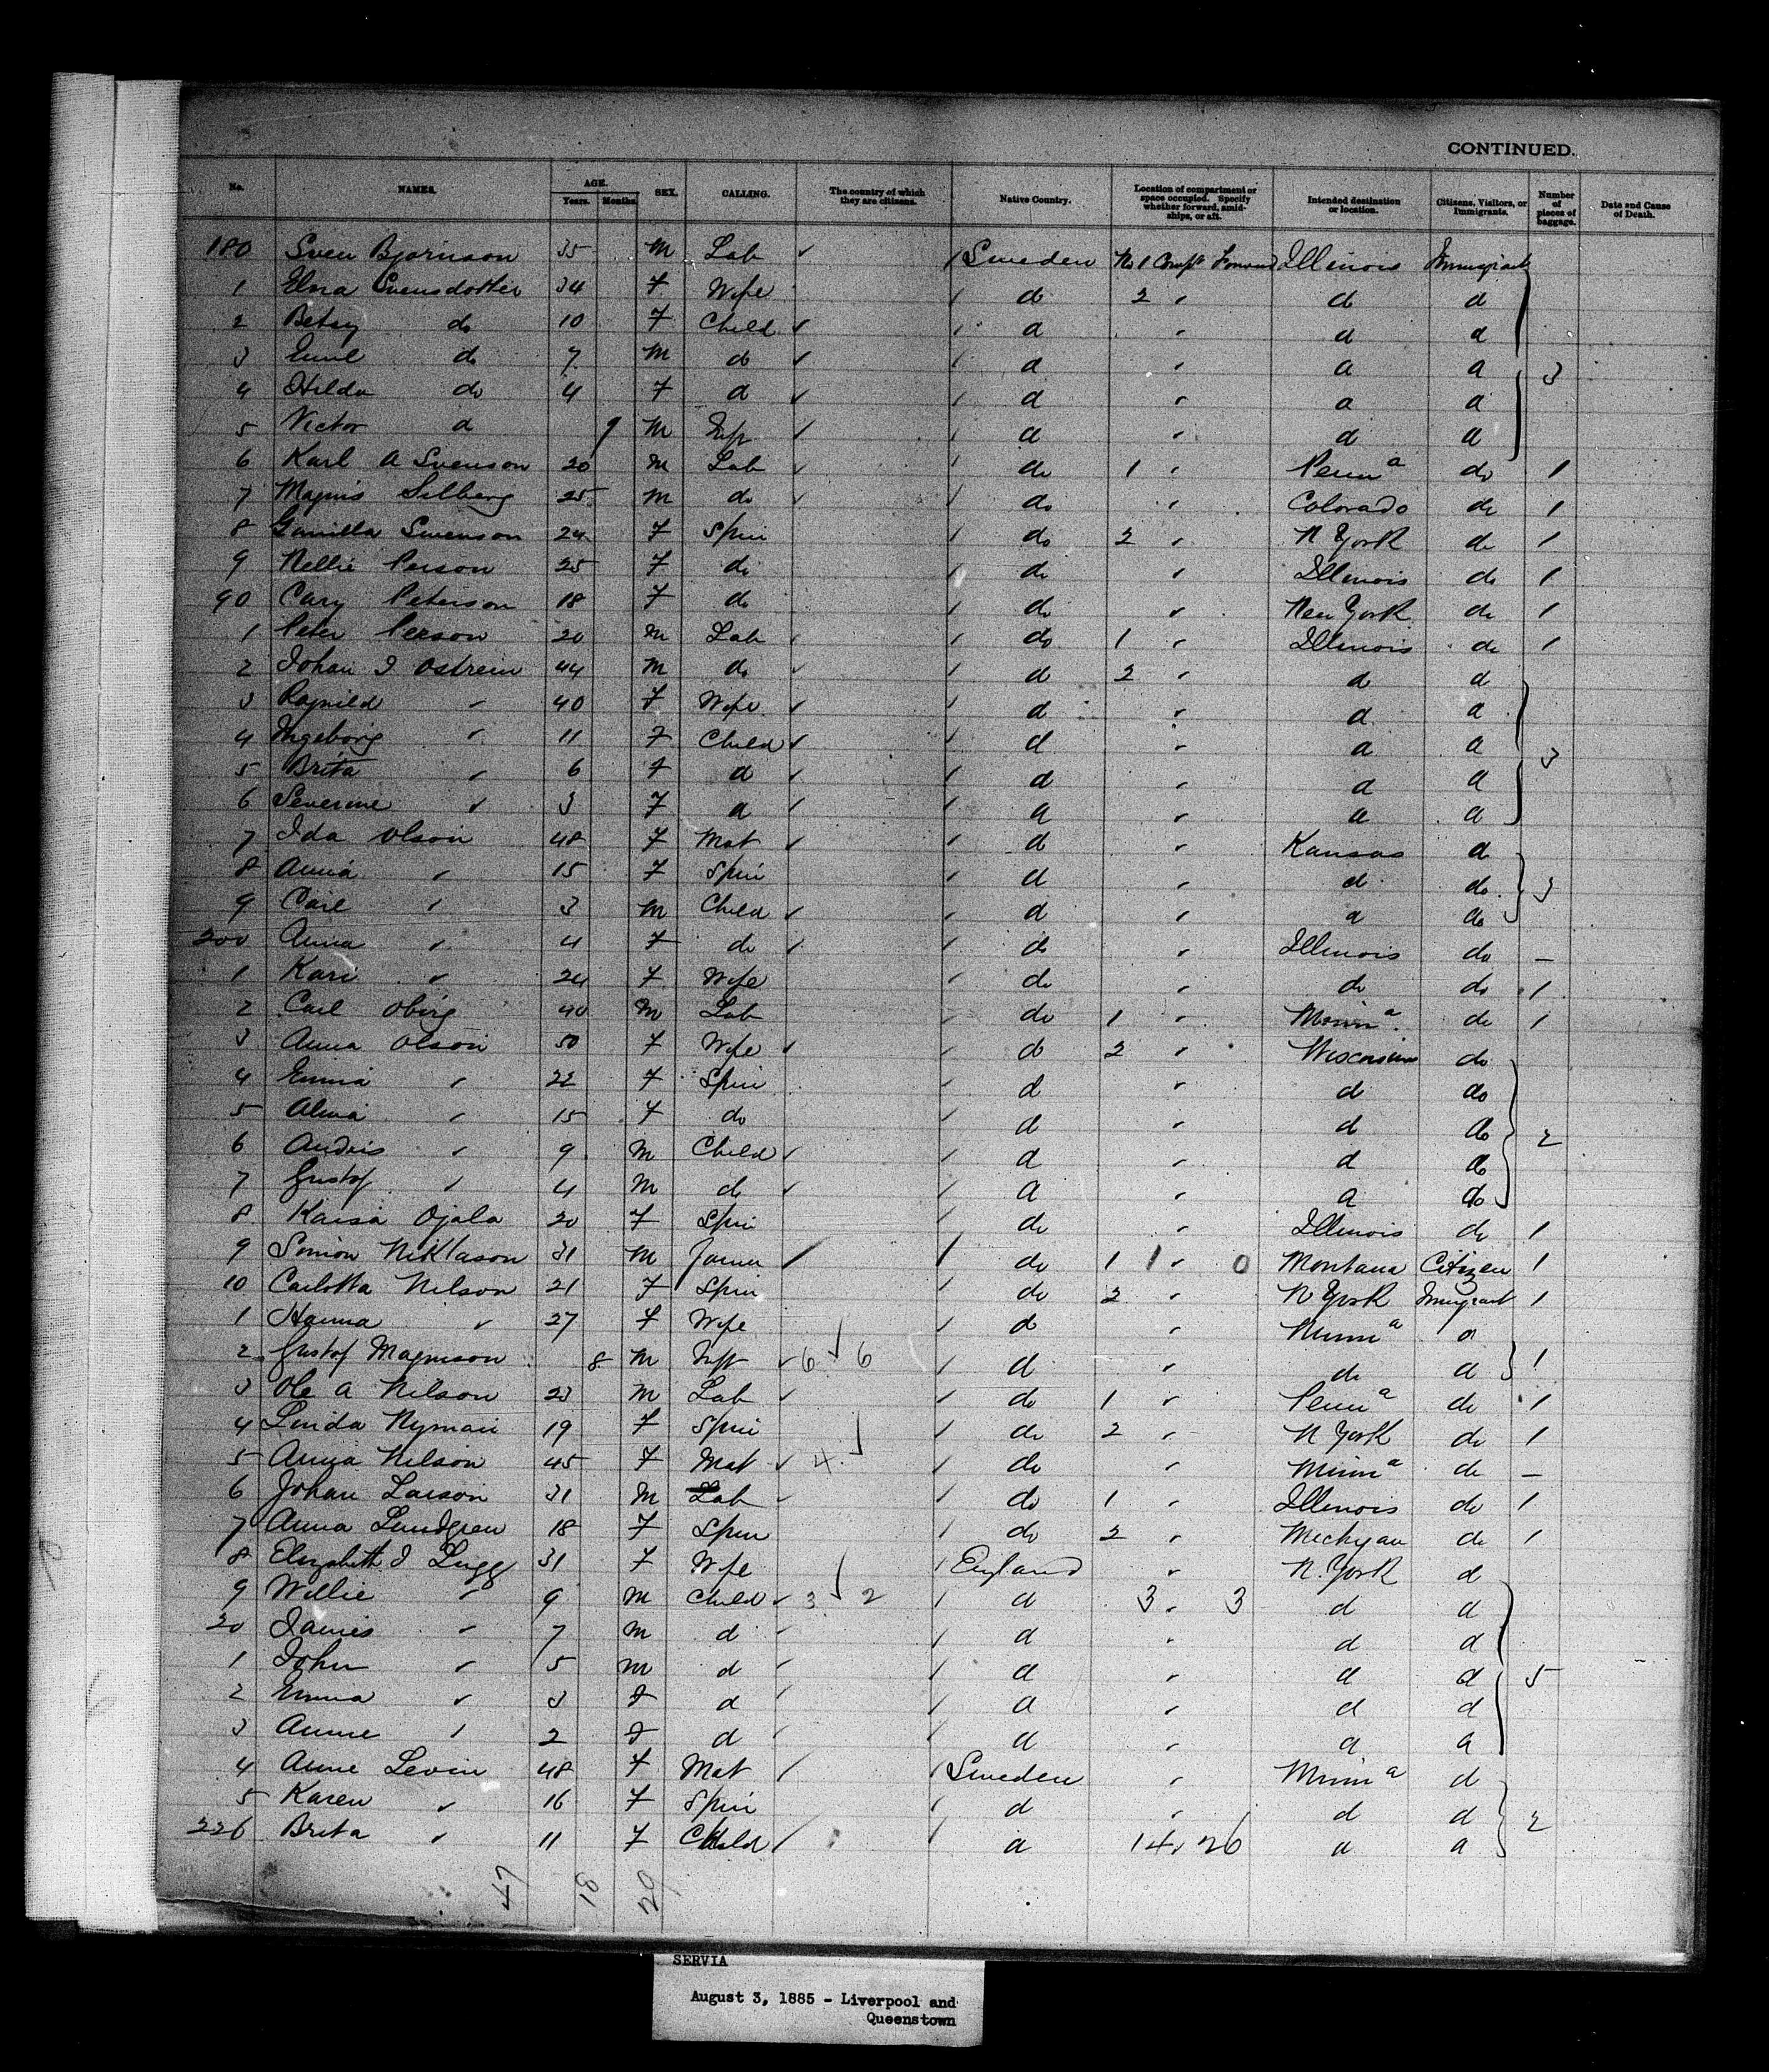 CONTINUED.
No. NAMES. AGE. Years. Months. SEX. CALLING. The country of which they are citizens. Native Country. Location of compartment or space occupied. Specify whether forward, amidships, or aft. Intended destination or location. Citizens, Visitors, or Immigrants. Number of pieces of baggage. Date and Cause of Death.
180 Sven Bjornson 35 M Lab Sweden No 1 Compt Forward Illinois Immigrant
1 Elna Svensdotter 34 F Wife do 2 " do do
2 Betsy do 10 F Child do " do do
3 Emil do 7 M do do " do do 3
4 Hilda do 4 F do do " do do
5 Victor do 9 M Inft do " do do
6 Karl A Svenson 20 M Lab do 1 " Penna do 1
7 Magnis Silberg 25 M do do " Colorado do 1
8 Gunilla Swenson 24 F Spin do 2 " N York do 1
9 Nellie Person 25 F do do " Illinois do 1
90 Cary Peterson 18 F do do " New York do 1
1 Peter Person 20 M Lab do 1 " Illinois do 1
2 Johan I Ostrein 44 M do do 2 " do do
3 Ragnild " 40 F Wife do " do do
4 Ingeborg " 11 F Child do " do do 3
5 Brita " 6 F do do " do do
6 Severine " 3 F do do " do do
7 Ida Olson 48 F Mat do " Kansas do
8 Anna " 15 F Spin do " do do 3
9 Carl " 3 M Child do " do do
200 Anna " 4 F do do " Illinois do —
1 Kari " 24 F Wife do " do do 1
2 Carl Obirg 40 M Lab do 1 " Minna do 1
3 Anna Olson 50 F Wife do 2 " Wisconsin do
4 Emma " 22 F Spin do " do do
5 Alma " 15 F do do " do do 2
6 Andris " 9 M Child do " do do
7 Gustof " 4 M do do " do do
8 Kaisa Ojala 20 F Spin do " Illinois do 1
9 Simon Niklason 31 M do 1 1 " 0 Montana Citizen 1
10 Carlotta Nilson 21 F Spin do 2 " N York Immigrant 1
1 Hanna " 27 F Wife do " Minna do
2 Gustof Magnison 8 M Inft 6 6 do " do do 1
3 Ole A Nilson 23 M Lab do 1 " Penna do 1
4 Linda Nyman 19 F Spin do 2 " N York do 1
5 Anna Nilson 45 F Mat 4 do " Minna do —
6 Johan Larson 31 M Lab do 1 " Illinois do 1
7 Anna Lundgren 18 F Spin do 2 " Michigan do 1
8 Elizabeth I Lugg 31 F Wife England " N. York do
9 Willie " 9 M Child 3 2 do 3 " 3 do do
20 James " 7 M do do " do do
1 John " 5 M do do " do do 5
2 Emma " 3 F do do " do do
3 Annie " 2 F do do " do do
4 Anne Levin 48 F Mat Sweden " Minna do
5 Karen " 16 F Spin do " do do 2
226 Brita " 11 F Child do 14 26 do do
47 18 29
SERVIA
August 3, 1885 - Liverpool and
Queenstown